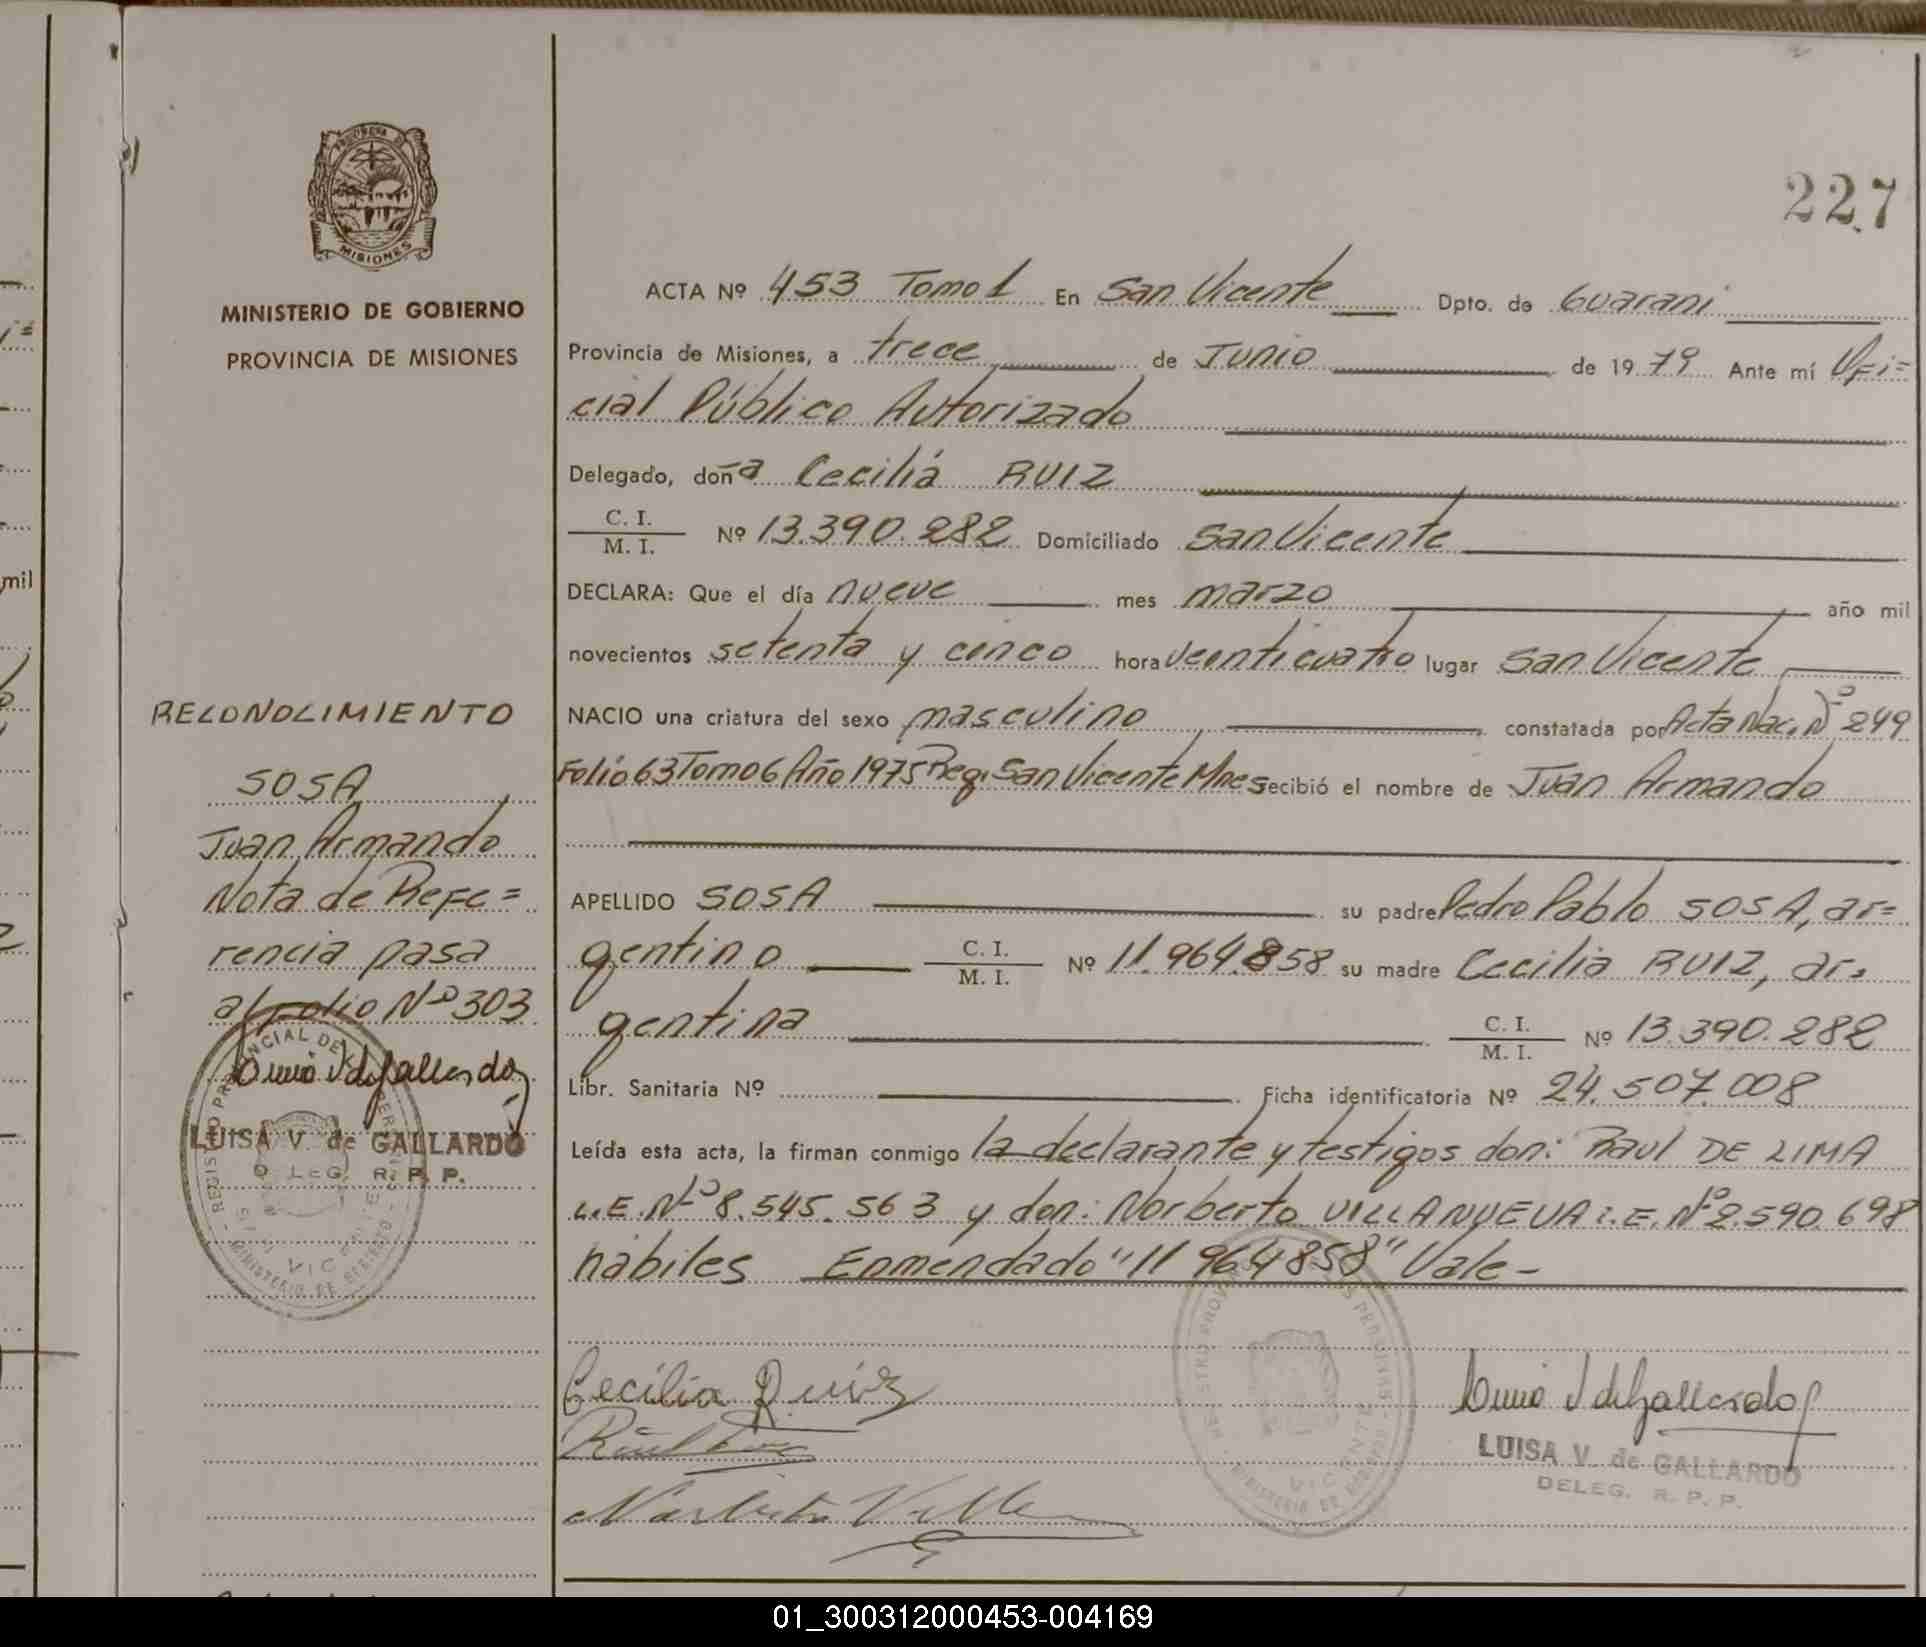 227
PROVINCIA DE
MISIONES
MINISTERIO DE GOBIERNO
PROVINCIA DE MISIONES
ACTA Nº 453 Tomo 1 En San Vicente Dpto. de Guarani
Provincia de Misiones, a trece de Junio de 1979 Ante mí Ofi=
cial Público Autorizado
Delegado, doña Cecilia RUIZ
C. I.
M. I. Nº 13.390.282 Domiciliado San Vicente
DECLARA: Que el día nueve mes marzo año mil
novecientos setenta y cinco hora veinticuatro lugar San Vicente
NACIO una criatura del sexo masculino constatada por Acta Nac. Nº 249
Folio 63 Tomo 6 Año 1975 Reg. San Vicente Mnes recibió el nombre de Juan Armando
APELLIDO SOSA su padre Pedro Pablo SOSA, ar=
gentino C. I.
M. I. Nº 11.964.858 su madre Cecilia RUIZ, ar=
gentina C. I.
M. I. Nº 13.390.282
Libr. Sanitaria Nº Ficha identificatoria Nº 24.507.008
Leída esta acta, la firman conmigo la declarante y testigos don: Raul DE LIMA
L.E. Nº 8.545.563 y don: Norberto VILLANUEVA L.E. Nº 2.590.698
habiles Enmendado "11964858" Vale-
Cecilia Ruiz
LUISA V. de GALLARDO
DELEG. R. P. P.
RECONOCIMIENTO
SOSA
Juan Armando
Nota de Refe=
rencia pasa
al folio Nº 303
LUISA V. de GALLARDO
DELEG. R. P. P.
mil
01_300312000453-004169